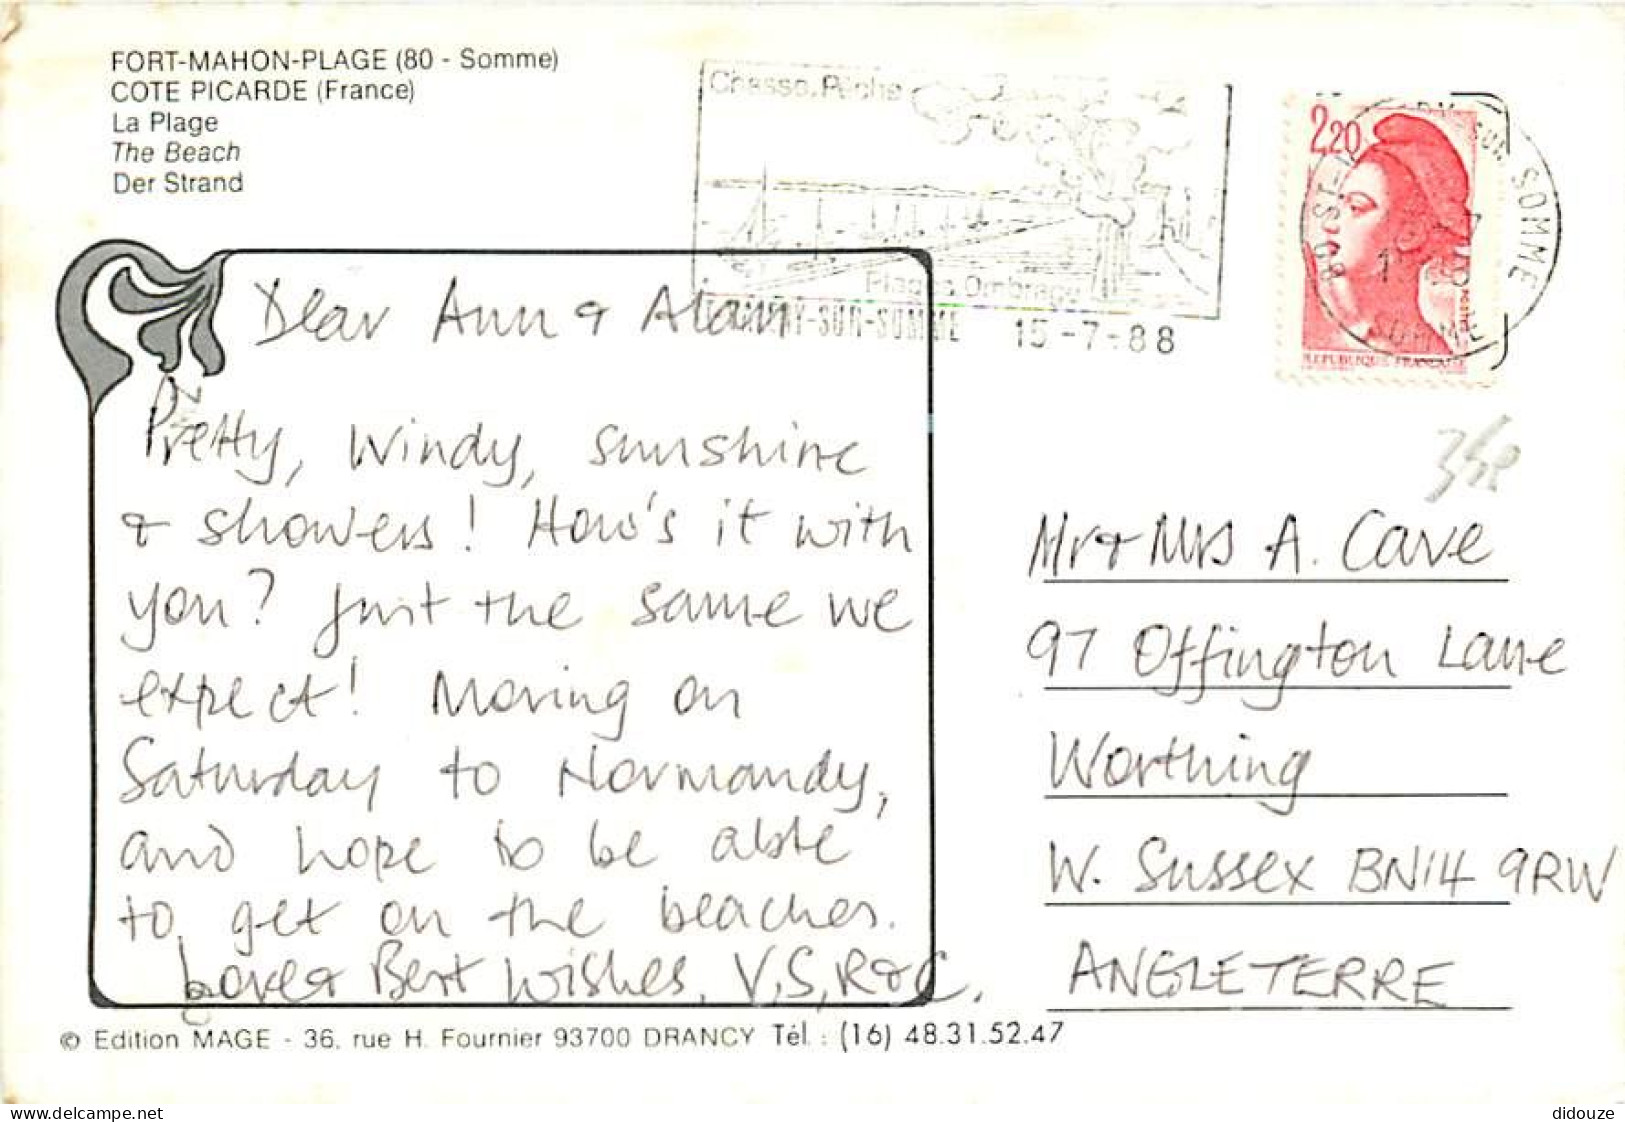 FORT-MAHON-PLAGE (80 - Somme)
COTE PICARDE (France)
La Plage
The Beach
Der Strand
Chasse, Pêche
Plages Ombragé
-SUR-SOMME 15-7-88
2,20
SUR SOMME
SOMME
REPUBLIQUE FRANCAISE
Dear Ann & Alan
Pretty, Windy, sunshine
& showers! How's it with
you? Just the same we
expect! Moving on
Saturday to Normandy,
and hope to be able
to get on the beaches.
Love & Best Wishes, V, S, R & C.
Mr & Mrs A. Cave
97 Offington Lane
Worthing
W. Sussex BN14 9RW
ANGLETERRE
© Edition MAGE - 36, rue H. Fournier 93700 DRANCY Tél. : (16) 48.31.52.47
www.delcampe.net
didouze